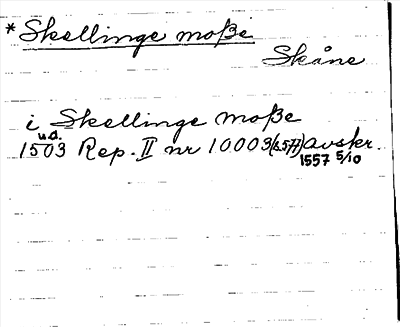 * Skellinge moße
Skåne
i Skellinge moße
u.d.
1503 Rep. II nr 10003 (s.577) avskr.
1557 5/10